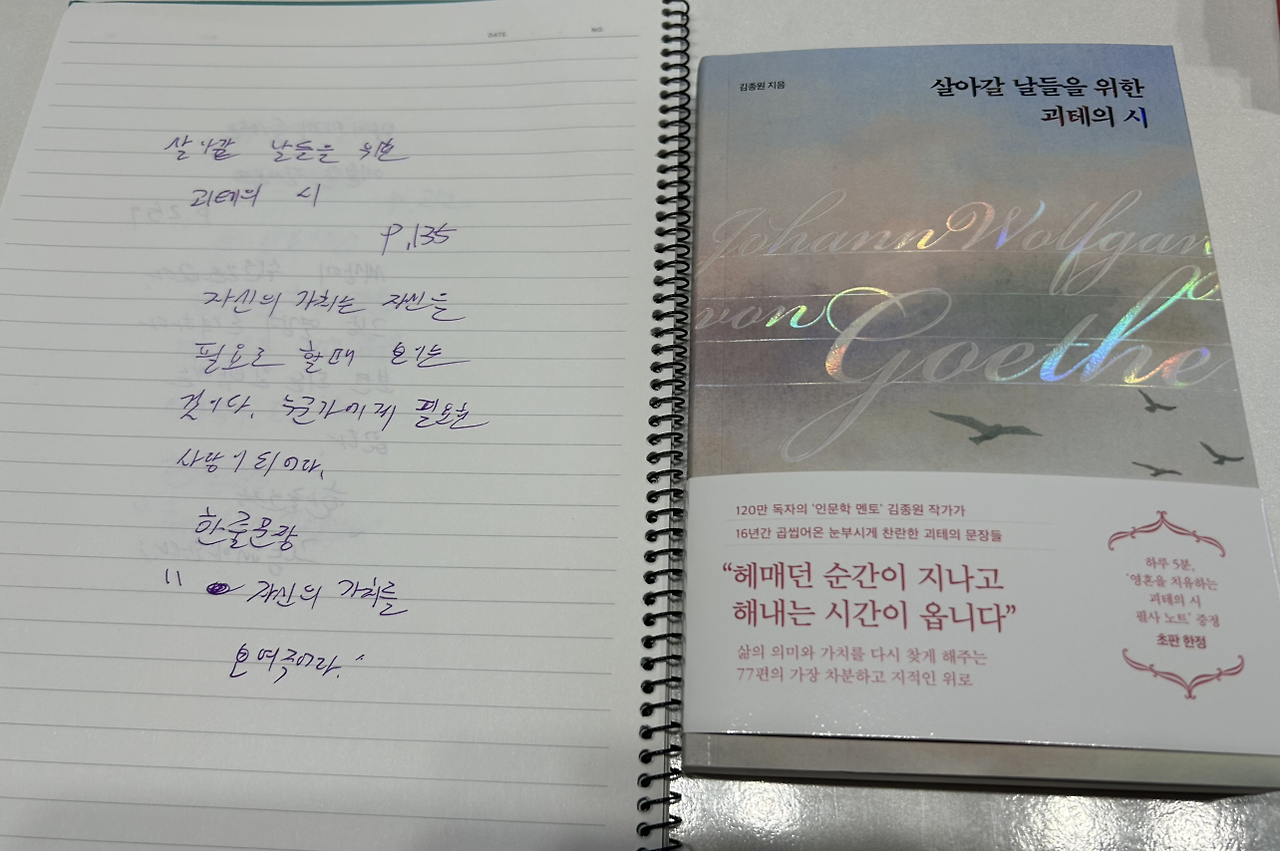 DATE. NO.
살아갈 날들을 위한
괴테의 시
P.135
자신의 가치는 자신을
필요로 할때 오는
것이다. 누군가에게 필요한
사람이 되어라.
한줄문장
" 자신의 가치를
보여주어라."
김종원 지음
살아갈 날들을 위한
괴테의 시
Johann Wolfgan
von
Goethe
120만 독자의 '인문학 멘토' 김종원 작가가
16년간 곱씹어온 눈부시게 찬란한 괴테의 문장들
“헤매던 순간이 지나고
해내는 시간이 옵니다”
삶의 의미와 가치를 다시 찾게 해주는
77편의 가장 차분하고 지적인 위로
하루 5분,
'영혼을 치유하는
괴테의 시
필사 노트' 증정
초판 한정